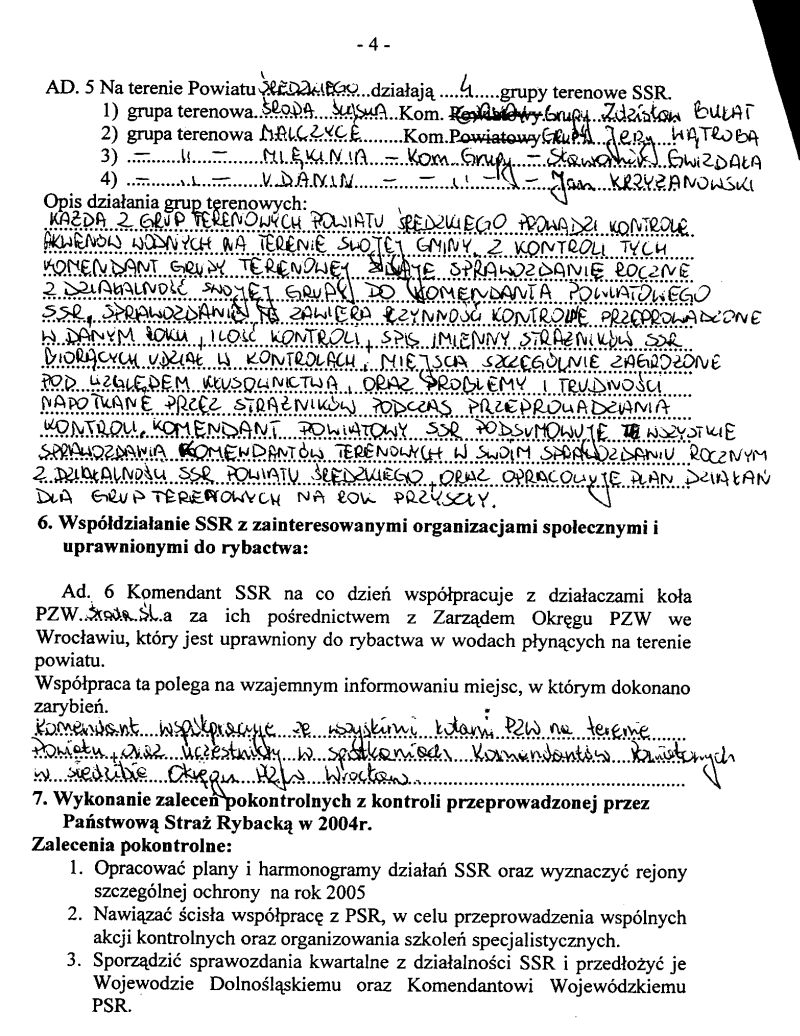 - 4 -
AD. 5 Na terenie Powiatu ŚREDZKIEGO działają 4 grupy terenowe SSR.
1) grupa terenowa ŚRODA ŚLĄSKA Kom. Powiatowy Grupy Zdzisław BUŁAT
2) grupa terenowa MALCZYCE Kom. Powiatowy GRUPY Jerzy WĄTROBA
3) – 11 – MIĘKINIA – Kom Grupy – Sławomir GWIZDAŁA
4) – 11 – UDANIN – – 11 – – Jan KRZYŻANOWSKI
Opis działania grup terenowych:
KAŻDA Z GRUP TERENOWYCH POWIATU ŚREDZKIEGO PROWADZI KONTROLE
AKWENÓW WODNYCH NA TERENIE SWOJEJ GMINY. Z KONTROLI TYCH
KOMENDANT GRUPY TERENOWEJ ZDAJE SPRAWOZDANIE ROCZNE
Z DZIAŁALNOŚĆ SWOJEJ GRUPY DO KOMENDANTA POWIATOWEGO
SSR, SPRAWOZDANIE TE ZAWIERA CZYNNOŚCI KONTROLNE PRZEPROWADZONE
W DANYM ROKU, ILOŚĆ KONTROLI, SPIS IMIENNY STRAŻNIKÓW SSR
BIORĄCYCH UDZIAŁ W KONTROLACH, MIEJSCA SZCZEGÓLNIE ZAGROŻONE
POD WZGLĘDEM KŁUSOWNICTWA, ORAZ PROBLEMY I TRUDNOŚCI
NAPOTKANE PRZEZ STRAŻNIKÓW PODCZAS PRZEPROWADZANIA
KONTROLI. KOMENDANT POWIATOWY SSR PODSUMOWUJE TE WSZYSTKIE
SPRAWOZDANIA KOMENDANTÓW TERENOWYCH W SWOIM SPRAWOZDANIU ROCZNYM
Z DZIAŁALNOŚCI SSR POWIATU ŚREDZKIEGO, ORAZ OPRACOWUJE PLAN DZIAŁAŃ
DLA GRUP TERENOWYCH NA ROK PRZYSZŁY.
6. Współdziałanie SSR z zainteresowanymi organizacjami społecznymi i
uprawnionymi do rybactwa:
Ad. 6 Komendant SSR na co dzień współpracuje z działaczami koła
PZW Środa Śl. a za ich pośrednictwem z Zarządem Okręgu PZW we
Wrocławiu, który jest uprawniony do rybactwa w wodach płynących na terenie
powiatu.
Współpraca ta polega na wzajemnym informowaniu miejsc, w którym dokonano
zarybień.
Komendant współpracuje ze wszystkimi kołami PZW na terenie
Powiatu, oraz uczestniczy w spotkaniach Komendantów Powiatowych
w siedzibie Okręgu PZW Wrocław.
7. Wykonanie zaleceń pokontrolnych z kontroli przeprowadzonej przez
Państwową Straż Rybacką w 2004r.
Zalecenia pokontrolne:
1. Opracować plany i harmonogramy działań SSR oraz wyznaczyć rejony
szczególnej ochrony na rok 2005
2. Nawiązać ścisła współpracę z PSR, w celu przeprowadzenia wspólnych
akcji kontrolnych oraz organizowania szkoleń specjalistycznych.
3. Sporządzić sprawozdania kwartalne z działalności SSR i przedłożyć je
Wojewodzie Dolnośląskiemu oraz Komendantowi Wojewódzkiemu
PSR.